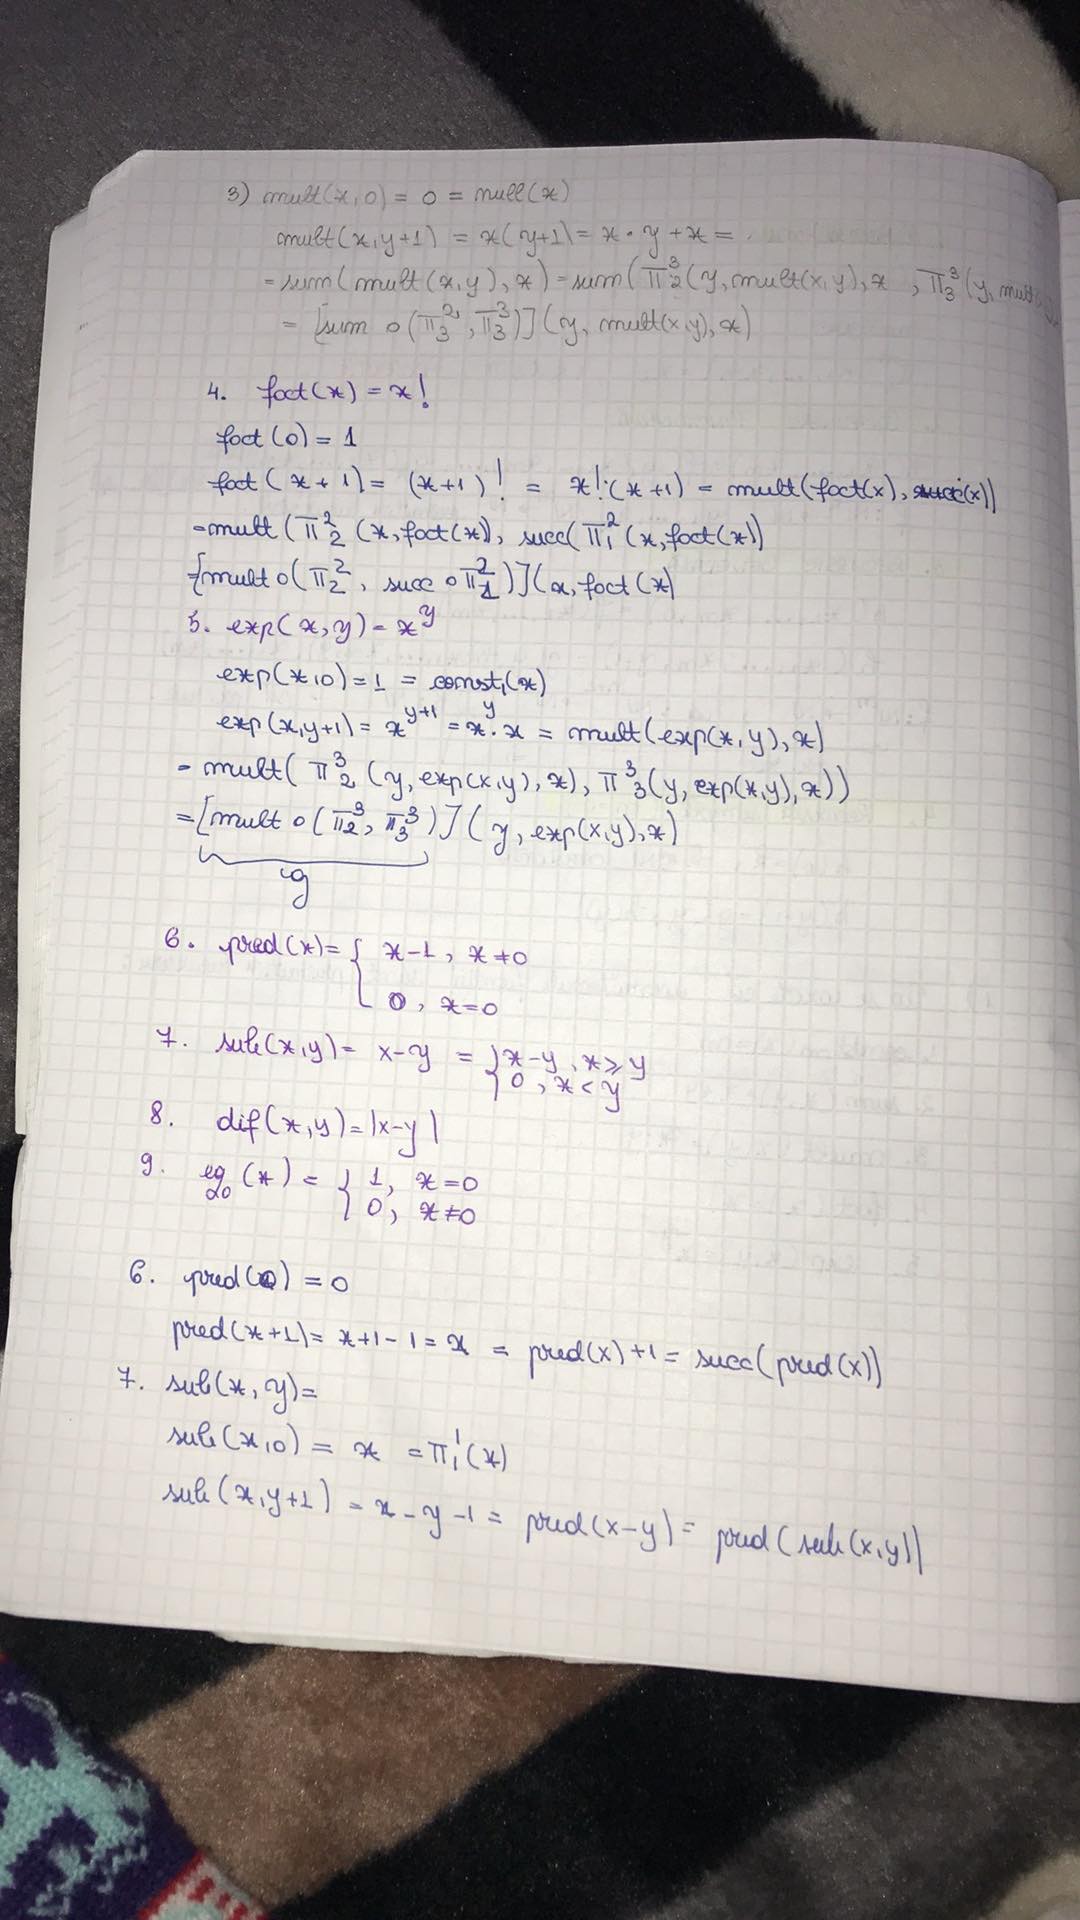 3) mult(x,0) = 0 = null(x)
mult(x,y+1) = x(y+1) = x·y+x =
= sum(mult(x,y),x) = sum(π³₂(y,mult(x,y),x , π³₃(y, mult
= [sum ∘(π²₃, π³₃)](y, mult(x,y),x)
4. fact(x) = x!
fact(0) = 1
fact(x+1) = (x+1)! = x!·(x+1) = mult(fact(x), succ(x))
=mult(π²₂(x,fact(x)), succ(π²₁(x,fact(x))
[mult∘(π²₂, succ∘π²₁)](x,fact(x)
5. exp(x,y) = x^y
exp(x,0) = 1 = const₁(x)
exp(x,y+1) = x^{y+1} = x^y·x = mult(exp(x,y),x)
= mult(π³₂(y,exp(x,y),x), π³₃(y,exp(x,y),x))
=[mult∘(π³₂, π³₃)](y,exp(x,y),x)
g
6. pred(x)= { x-1, x≠0
0, x=0
7. sub(x,y) = x-y = { x-y, x≥y
0, x<y
8. dif(x,y)=|x-y|
9. eg₂₀(x) = { 1, x=0
0, x≠0
6. pred(0) = 0
pred(x+1) = x+1-1 = x = pred(x)+1 = succ(pred(x))
7. sub(x,y)=
sub(x,0) = x = π¹₁(x)
sub(x,y+1) = x-y-1 = pred(x-y) = pred(sub(x,y))